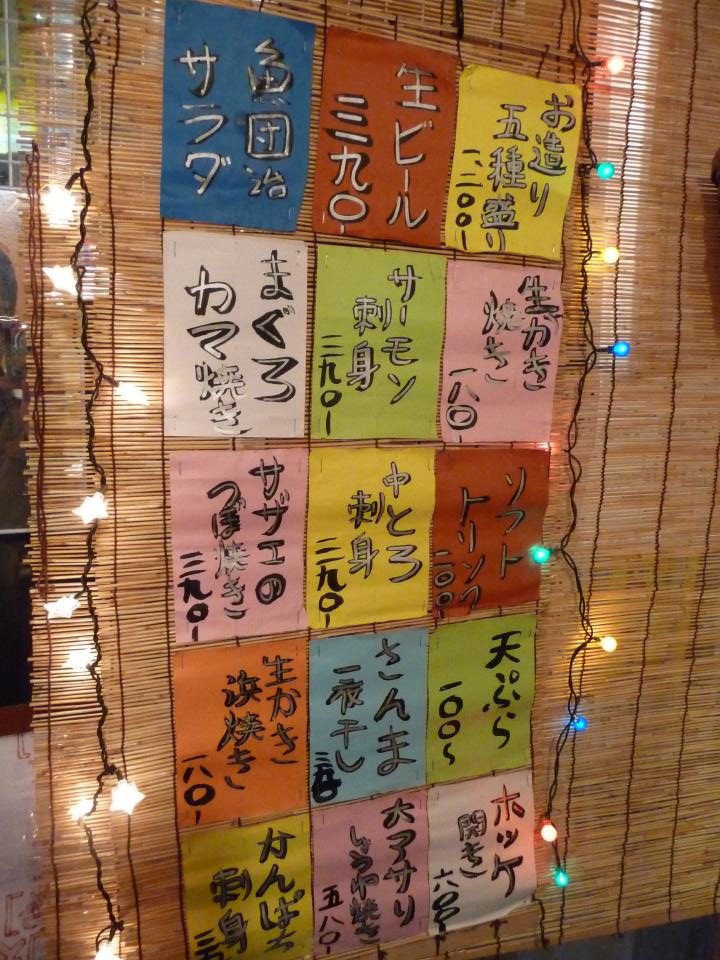 お造り
五種盛り
一、二〇〇ー
生ビール
三九〇ー
魚団治
サラダ
生かき
焼き
一八〇ー
サーモン
刺身
三九〇ー
まぐろ
カマ焼き
ソフト
ドリンク
二〇〇ー
中とろ
刺身
三九〇ー
サザエの
つぼ焼き
三九〇ー
天ぷら
一〇〇〜
さんま
一夜干し
生かき
浜焼き
一八〇ー
ホッケ
開き
六〇〇ー
大アサリ
しょうゆ焼き
五八〇ー
かんぱち
刺身